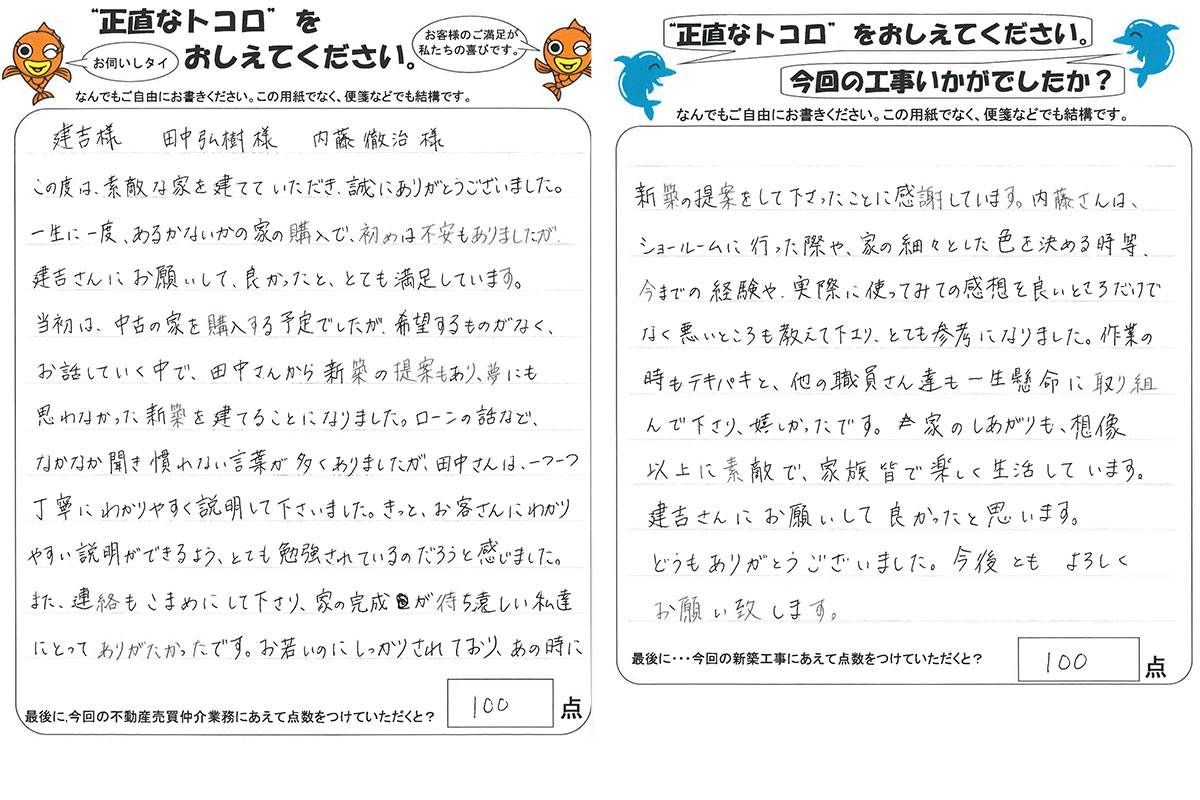 "正直なトコロ"を
おしえてください。
お伺いしタイ
お客様のご満足が
私たちの喜びです。
なんでもご自由にお書きください。この用紙でなく、便箋などでも結構です。
建吉様 田中弘樹様 内藤徹治様
この度は、素敵な家を建てていただき、誠にありがとうございました。
一生に一度、あるかないかの家の購入で、初めは不安もありましたが、
建吉さんにお願いして、良かったと、とても満足しています。
当初は、中古の家を購入する予定でしたが、希望するものがなく、
お話していく中で、田中さんから新築の提案もあり、夢にも
思わなかった新築を建てることになりました。ローンの話など、
なかなか聞き慣れない言葉が多くありましたが、田中さんは、一つ一つ
丁寧にわかりやすく説明して下さいました。きっと、お客さんにわかり
やすい説明ができるよう、とても勉強されているのだろうと感じました。
また、連絡もこまめにして下さり、家の完成が待ち遠しい私達
にとってありがたかったです。お若いのにしっかりされており、あの時に
最後に、今回の不動産売買仲介業務にあえて点数をつけていただくと?
100点
"正直なトコロ"をおしえてください。
今回の工事いかがでしたか?
なんでもご自由にお書きください。この用紙でなく、便箋などでも結構です。
新築の提案をして下さったことに感謝しています。内藤さんは、
ショールームに行った際や、家の細々とした色を決める時等、
今までの経験や、実際に使ってみての感想を良いところだけで
なく悪いところも教えて下さり、とても参考になりました。作業の
時もテキパキと、他の職員さん達も一生懸命に取り組
んで下さり、嬉しかったです。家のしあがりも、想像
以上に素敵で、家族皆で楽しく生活しています。
建吉さんにお願いして良かったと思います。
どうもありがとうございました。今後ともよろしく
お願い致します。
最後に・・・今回の新築工事にあえて点数をつけていただくと?
100点